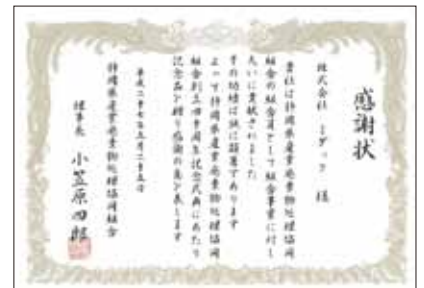 感謝状
株式会社 ミダック 様
貴社は静岡県産業廃棄物処理協同
組合の組合員として組合事業に対し
大いに貢献されました
その功績は誠に顕著であります
よって静岡県産業廃棄物処理協同
組合創立四十周年記念式典にあたり
記念品を贈り感謝の意を表します
平成二十七年五月二十五日
静岡県産業廃棄物処理協同組合
理事長 小笠原四郎